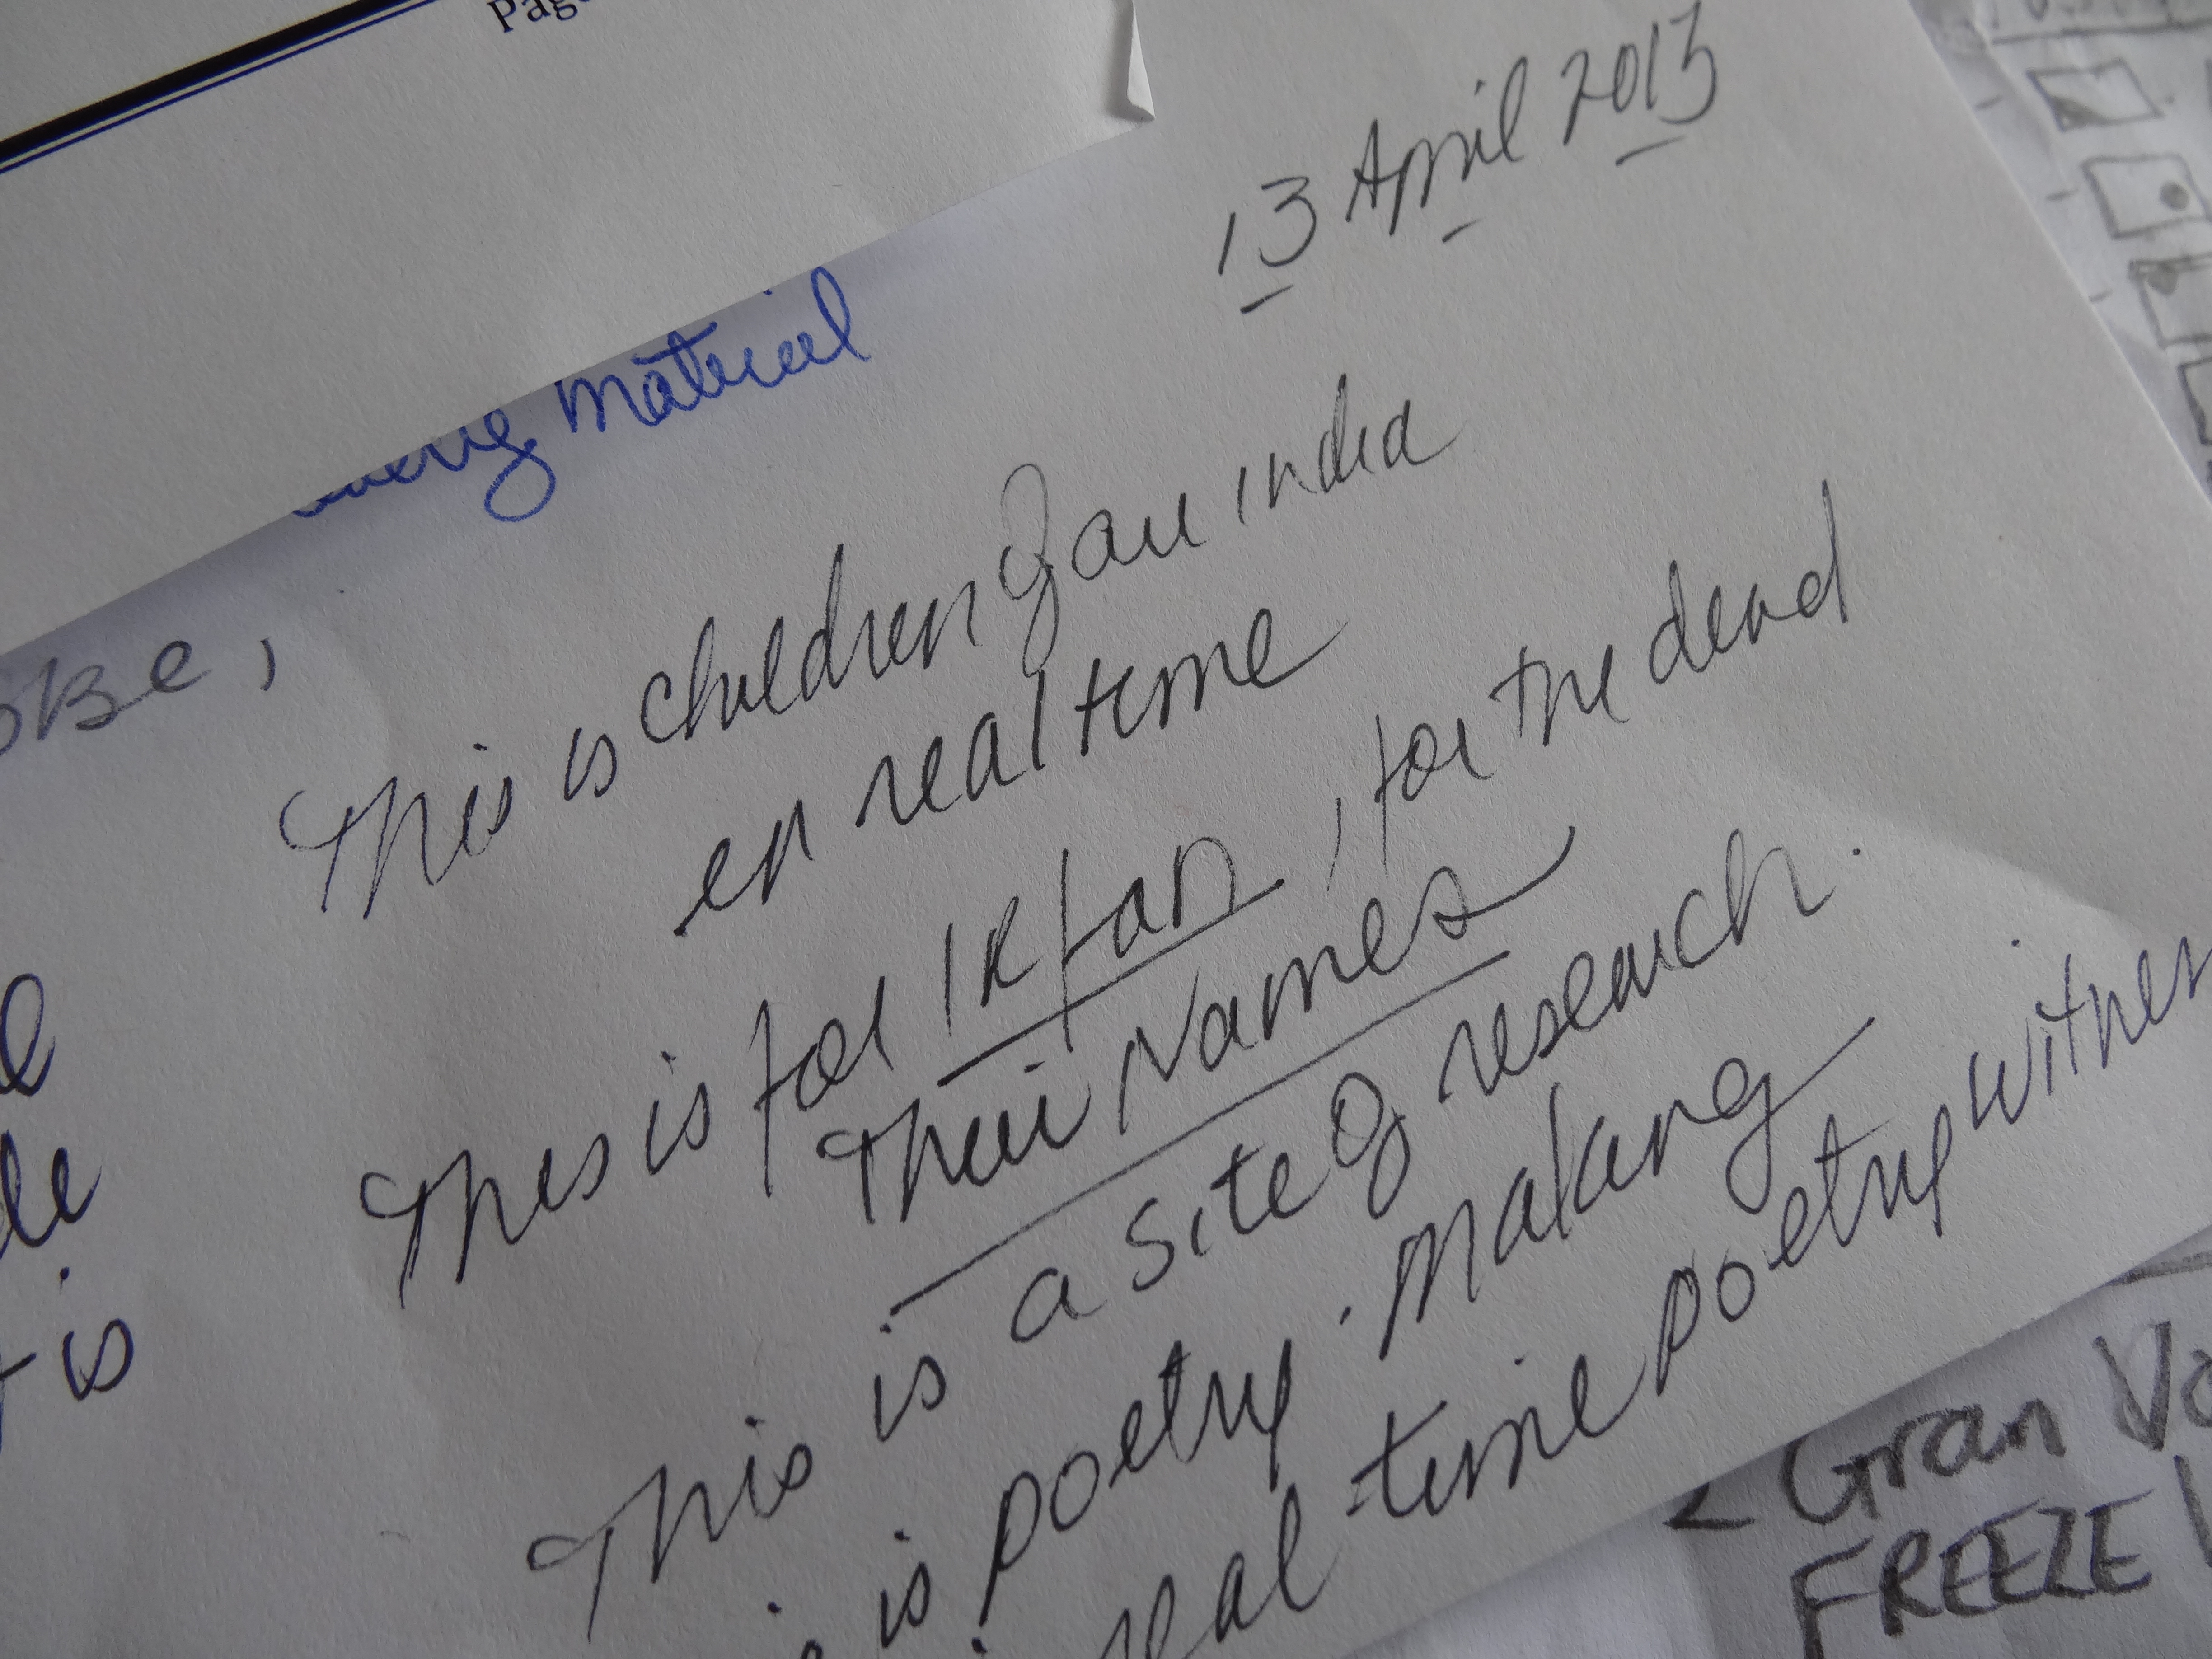 Pag
13 April 2013
material
This is children of an india
in real time
This is for IRfan, for the dead
Their Names
This is a site of research.
is poetry. Making
real time poetry witnes
is
Gran Va
FREEZE